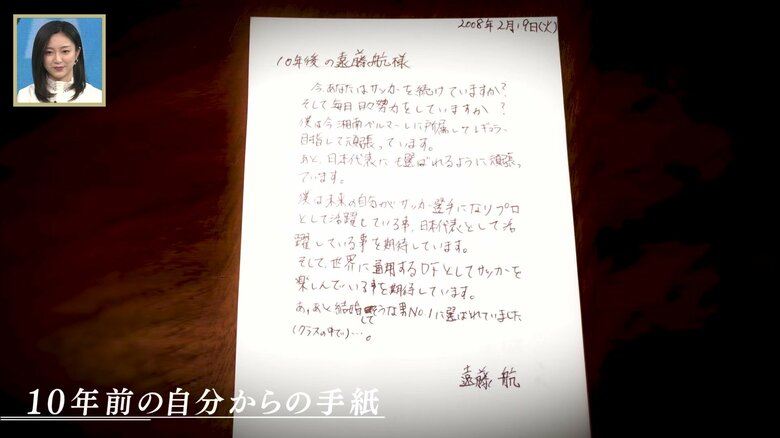 2008年2月19日(火)
10年後の遠藤航様
今、あなたはサッカーを続けていますか?
そして毎日日々努力をしていますか?
僕は今湘南ベルマーレに所属してレギュラー
目指して頑張っています。
あと、日本代表にも選ばれるように頑張っ
ています。
僕は未来の自分がサッカー選手になりプロ
として活躍している事、日本代表として活
躍している事を期待しています。
そして、世界に通用するDFとしてサッカーを
楽しんでいる事を期待しています。
あ、あと結婚してそうな男NO1に選ばれていました
(クラスの中で)…。
遠藤 航
10年前の自分からの手紙